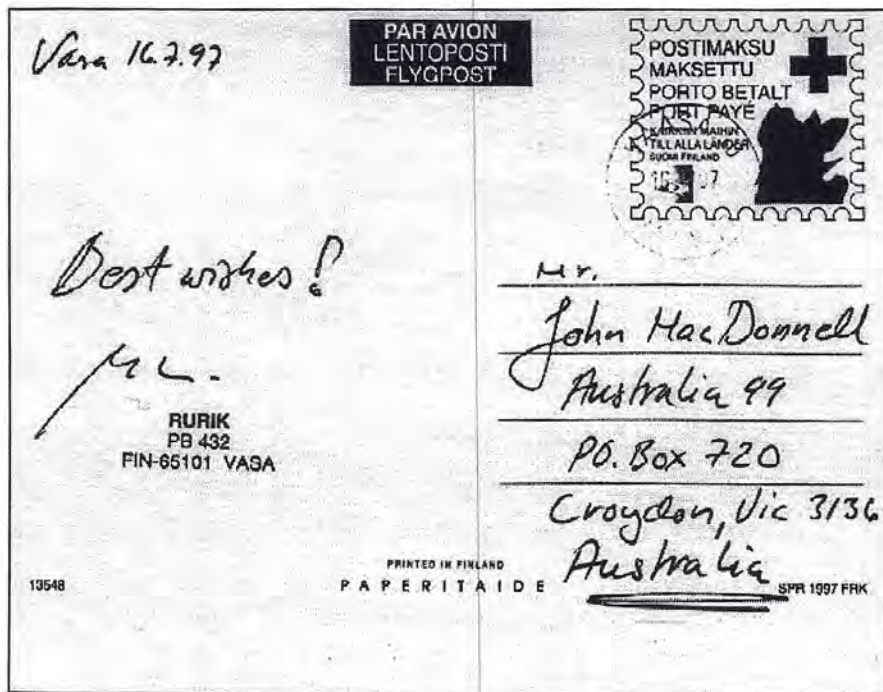 Vasa 16.7.97
PAR AVION
LENTOPOSTI
FLYGPOST
POSTIMAKSU
MAKSETTU
PORTO BETALT
PORT PAYÉ
KAIKKIIN MAIHIN
TILL ALLA LÄNDER
SUOMI FINLAND
Best wishes!
RURIK
PB 432
FIN-65101 VASA
Mr.
John MacDonnell
Australia 99
P.O. Box 720
Croydon, Vic 3136
Australia
13548
PRINTED IN FINLAND
PAPERITAIDE
SPR 1997 FRK